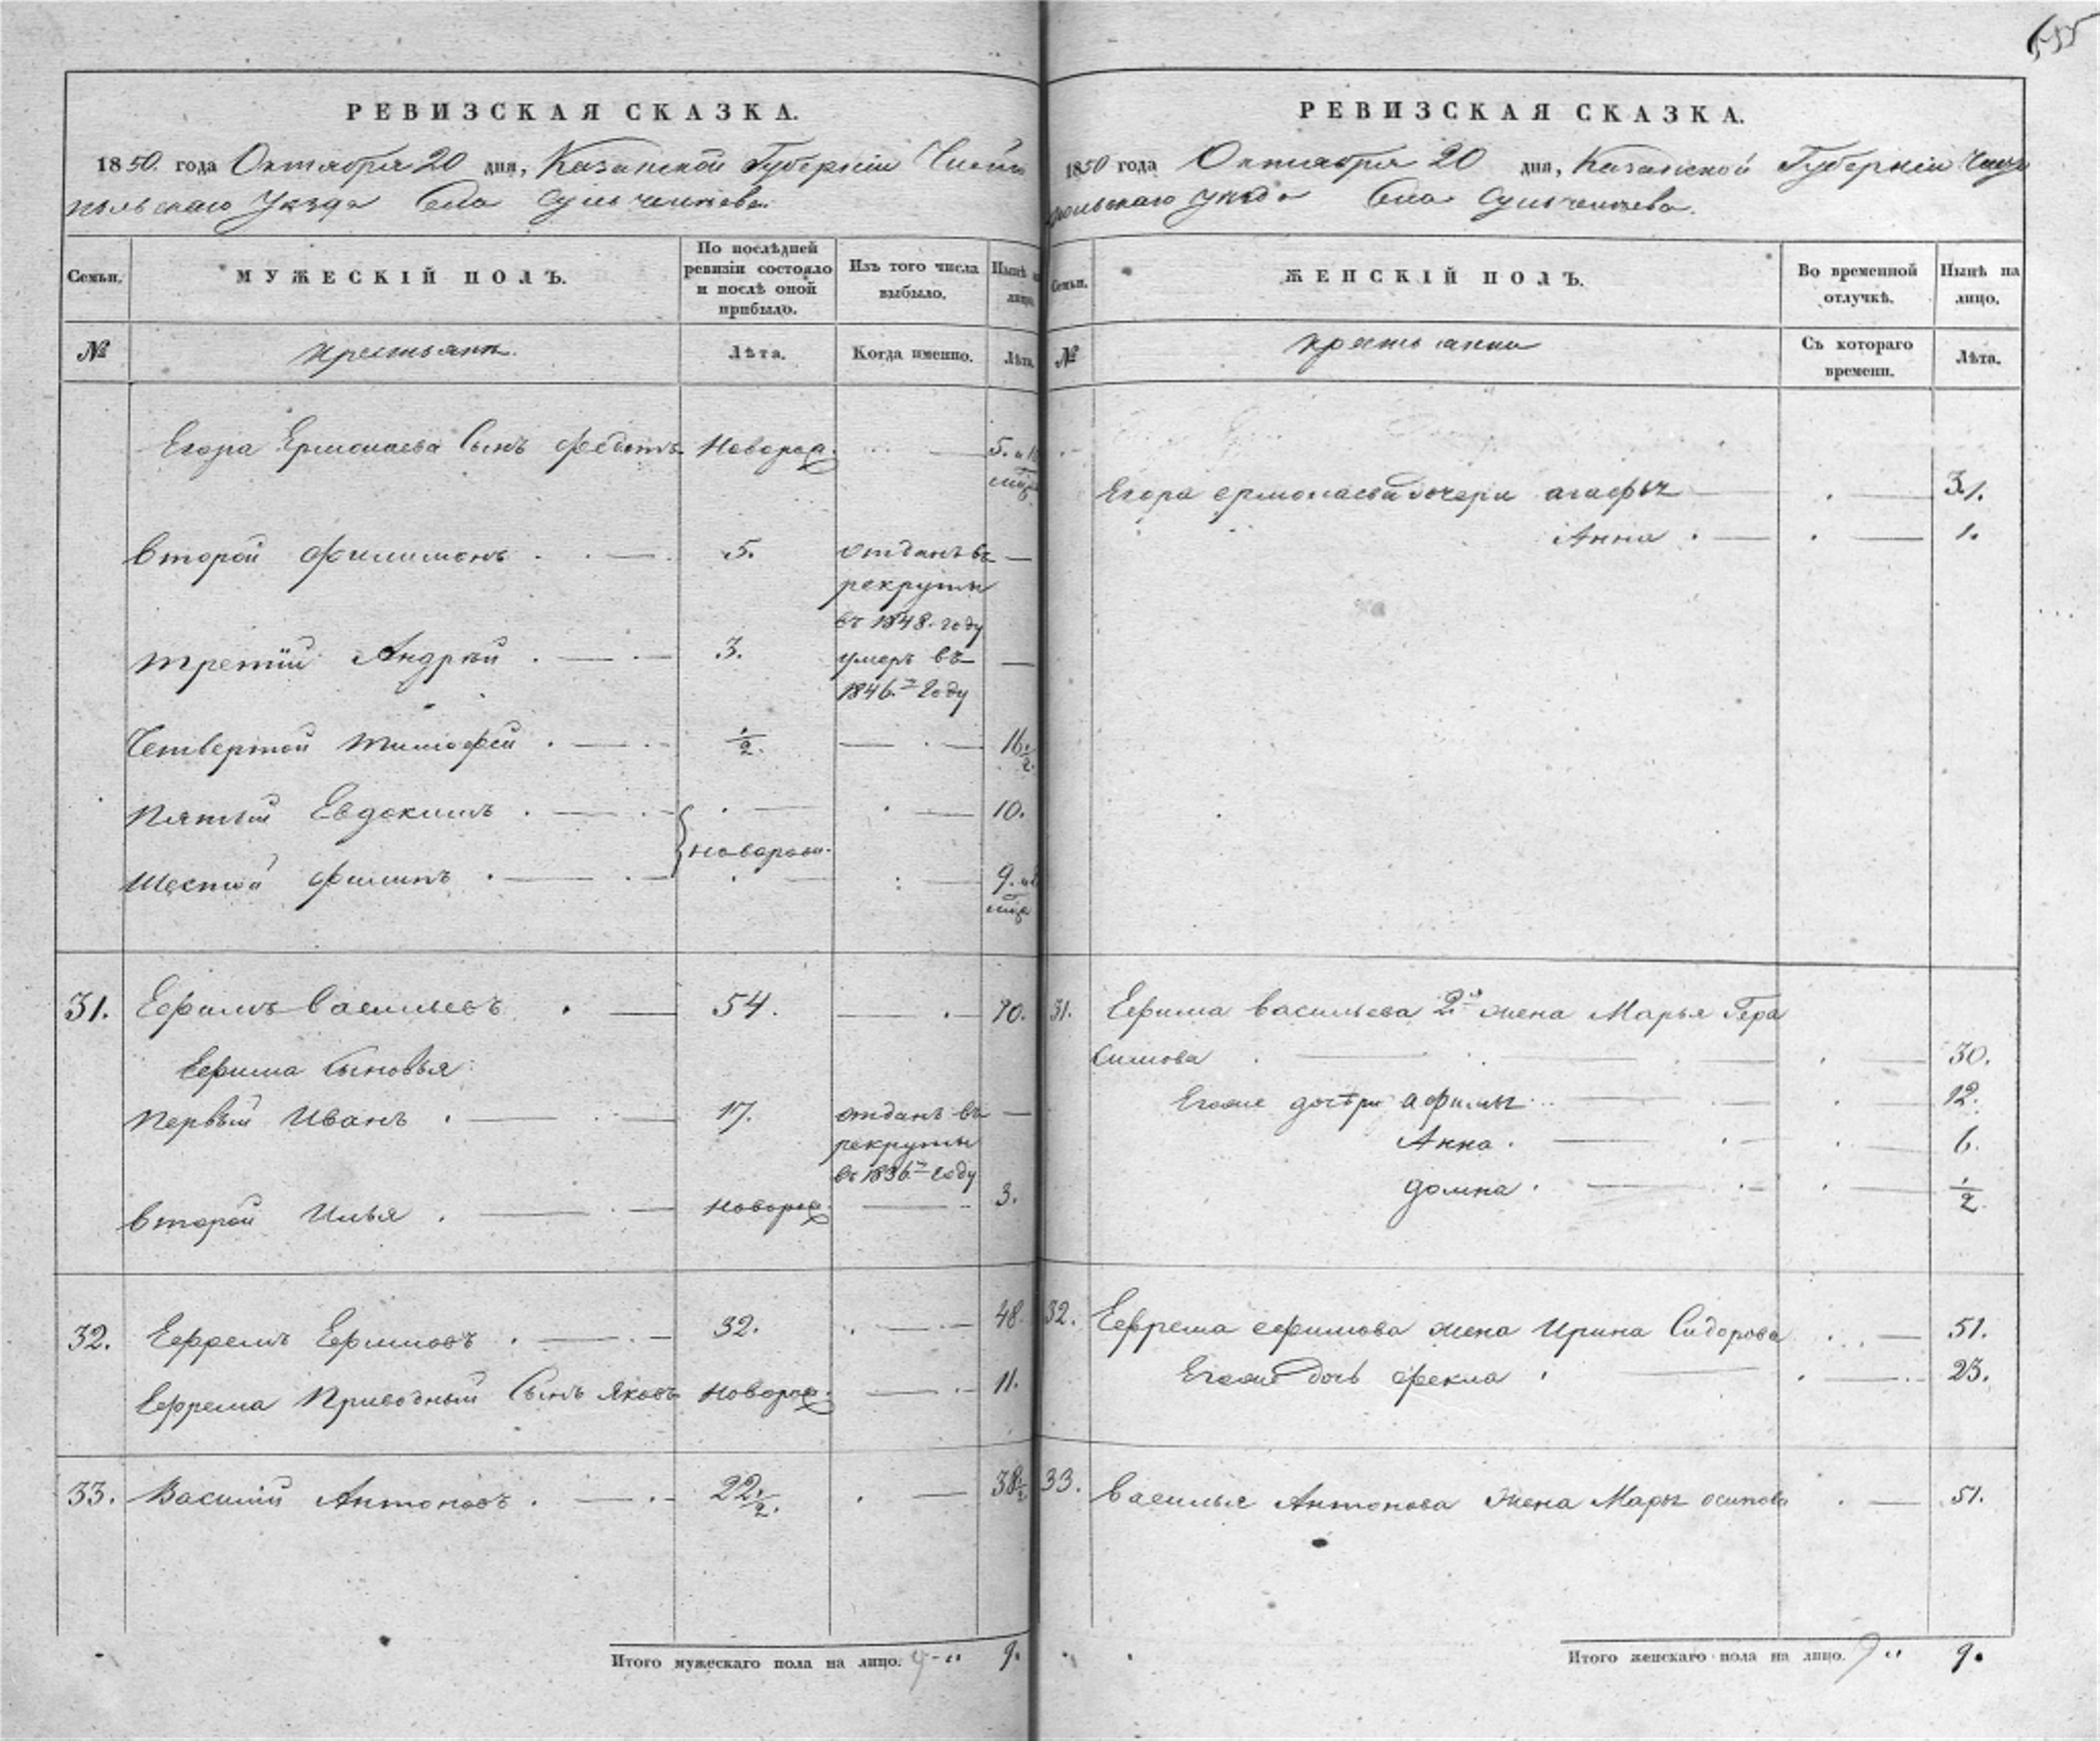 РЕВИЗСКАЯ СКАЗКА.
1850. года Октября 20 дня, Казанской Губерніи Чисто
польскаго Уѣзда Села Сульчеппева.
Семьи.
МУЖЕСКІЙ ПОЛЪ.
По послѣдней ревизіи состояло и послѣ оной прибыло.
Изъ того числа выбыло.
Нынѣ на лицо.
№
крестьяне.
Лѣта.
Когда именно.
Лѣта.
Егора Ермолаева Сынъ Федотъ Новорож. 5. и
мѣс
второй Филимонъ 5. отданъ въ —
рекруты
въ 1848. году
третій Андрѣй 3. умеръ въ —
1846.го году
Четвертой тимофей ½. 16 ½
Пятый Евдокимъ 10.
новорож.
Шестой Филипъ 9. и
мѣся
31. Ефимъ Васильевъ 54. 70.
Ефима Сыновья:
Первый Иванъ 17. отданъ въ —
рекруты
въ 1836.го году
второй Илья новорож. 3.
32. Ефремъ Ефимовъ 32. 48.
Ефрема Приводный Сынъ Яковъ новорож. 11.
33. Василій Антоновъ 22 ½. 38 ½
Итого мужескаго пола на лицо. 9 9.
РЕВИЗСКАЯ СКАЗКА.
1850 года Октября 20 дня, Казанской Губерніи Чисто
польскаго уѣзда Села Сульчеппева.
Семьи.
ЖЕНСКІЙ ПОЛЪ.
Во временной отлучкѣ.
Нынѣ на лицо.
№
крестьянки
Съ котораго времени.
Лѣта.
Егора ермолаева дочери агафья
Анна 1.
31. Ефима васильева 2я жена Марья Гера
симова 30.
Егоже дочѣри афимья 12.
Анна 6.
домна ½
32. Ефрема ефимова жена Ирина Сидорова 51.
Егоже дочь фекла 23.
33. василья Антонова жена Марья осипова 51.
Итого женскаго пола на лицо. 9 9.